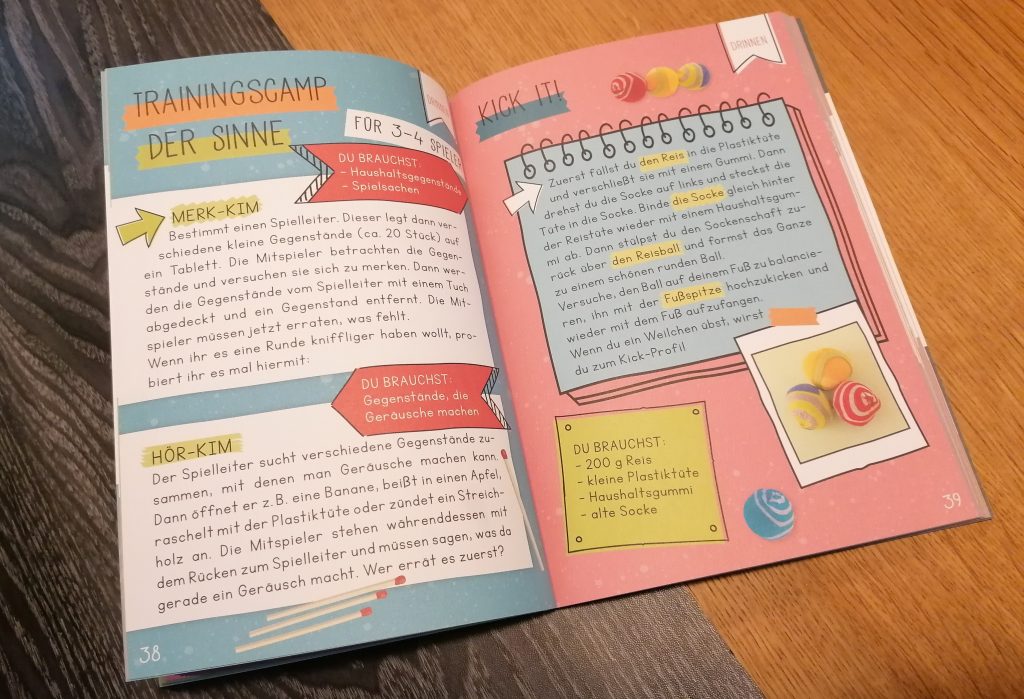 TRAININGSCAMP
DER SINNE
DRINNEN
FÜR 3-4 SPIELER
DU BRAUCHST:
- Haushaltsgegenstände
- Spielsachen
MERK-KIM
Bestimmt einen Spielleiter. Dieser legt dann ver-
schiedene kleine Gegenstände (ca. 20 Stück) auf
ein Tablett. Die Mitspieler betrachten die Gegen-
stände und versuchen sie sich zu merken. Dann wer-
den die Gegenstände vom Spielleiter mit einem Tuch
abgedeckt und ein Gegenstand entfernt. Die Mit-
spieler müssen jetzt erraten, was fehlt.
Wenn ihr es eine Runde kniffliger haben wollt, pro-
biert ihr es mal hiermit:
DU BRAUCHST:
Gegenstände, die
Geräusche machen
HÖR-KIM
Der Spielleiter sucht verschiedene Gegenstände zu-
sammen, mit denen man Geräusche machen kann.
Dann öffnet er z.B. eine Banane, beißt in einen Apfel,
raschelt mit der Plastiktüte oder zündet ein Streich-
holz an. Die Mitspieler stehen währenddessen mit
dem Rücken zum Spielleiter und müssen sagen, was da
gerade ein Geräusch macht. Wer errät es zuerst?
38
DRINNEN
KICK IT!
Zuerst füllst du den Reis in die Plastiktüte
und verschließt sie mit einem Gummi. Dann
drehst du die Socke auf links und steckst die
Tüte in die Socke. Binde die Socke gleich hinter
der Reistüte wieder mit einem Haushaltsgum-
mi ab. Dann stülpst du den Sockenschaft zu-
rück über den Reisball und formst das Ganze
zu einem schönen runden Ball.
Versuche, den Ball auf deinem Fuß zu balancie-
ren, ihn mit der Fußspitze hochzukicken und
wieder mit dem Fuß aufzufangen.
Wenn du ein Weilchen übst, wirst
du zum Kick-Profi!
DU BRAUCHST:
- 200 g Reis
- kleine Plastiktüte
- Haushaltsgummi
- alte Socke
39